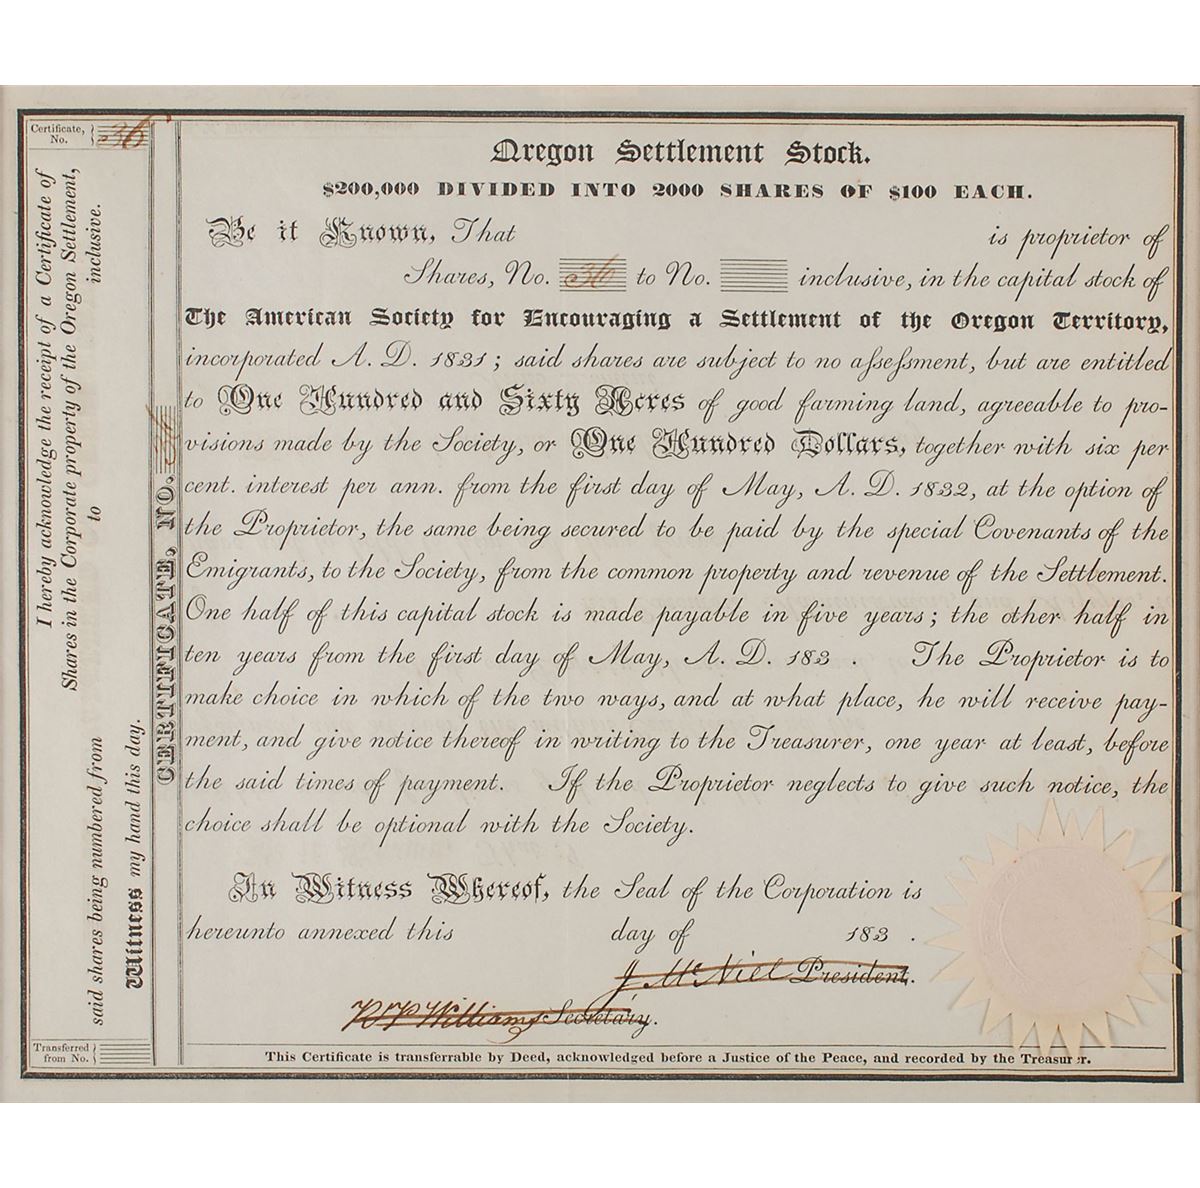 Certificate, No. 36
I hereby acknowledge the receipt of a Certificate of
Shares in the Corporate property of the Oregon Settlement,
said shares being numbered from to inclusive.
Witness my hand this day.
Transferred
from No.
CERTIFICATE, NO. 36
Oregon Settlement Stock.
$200,000 DIVIDED INTO 2000 SHARES OF $100 EACH.
Be it Known, That is proprietor of
Shares, No. 36 to No. inclusive, in the capital stock of
The American Society for Encouraging a Settlement of the Oregon Territory,
incorporated A. D. 1831; said shares are subject to no assessment, but are entitled
to One Hundred and Sixty Acres of good farming land, agreeable to pro-
visions made by the Society, or One Hundred Dollars, together with six per
cent. interest per ann. from the first day of May, A. D. 1832, at the option of
the Proprietor, the same being secured to be paid by the special Covenants of the
Emigrants, to the Society, from the common property and revenue of the Settlement.
One half of this capital stock is made payable in five years; the other half in
ten years from the first day of May, A. D. 183 . The Proprietor is to
make choice in which of the two ways, and at what place, he will receive pay-
ment, and give notice thereof in writing to the Treasurer, one year at least, before
the said times of payment. If the Proprietor neglects to give such notice, the
choice shall be optional with the Society.
In Witness Whereof, the Seal of the Corporation is
hereunto annexed this day of 183 .
J McNiel President.
R P Williams Secretary.
This Certificate is transferrable by Deed, acknowledged before a Justice of the Peace, and recorded by the Treasurer.